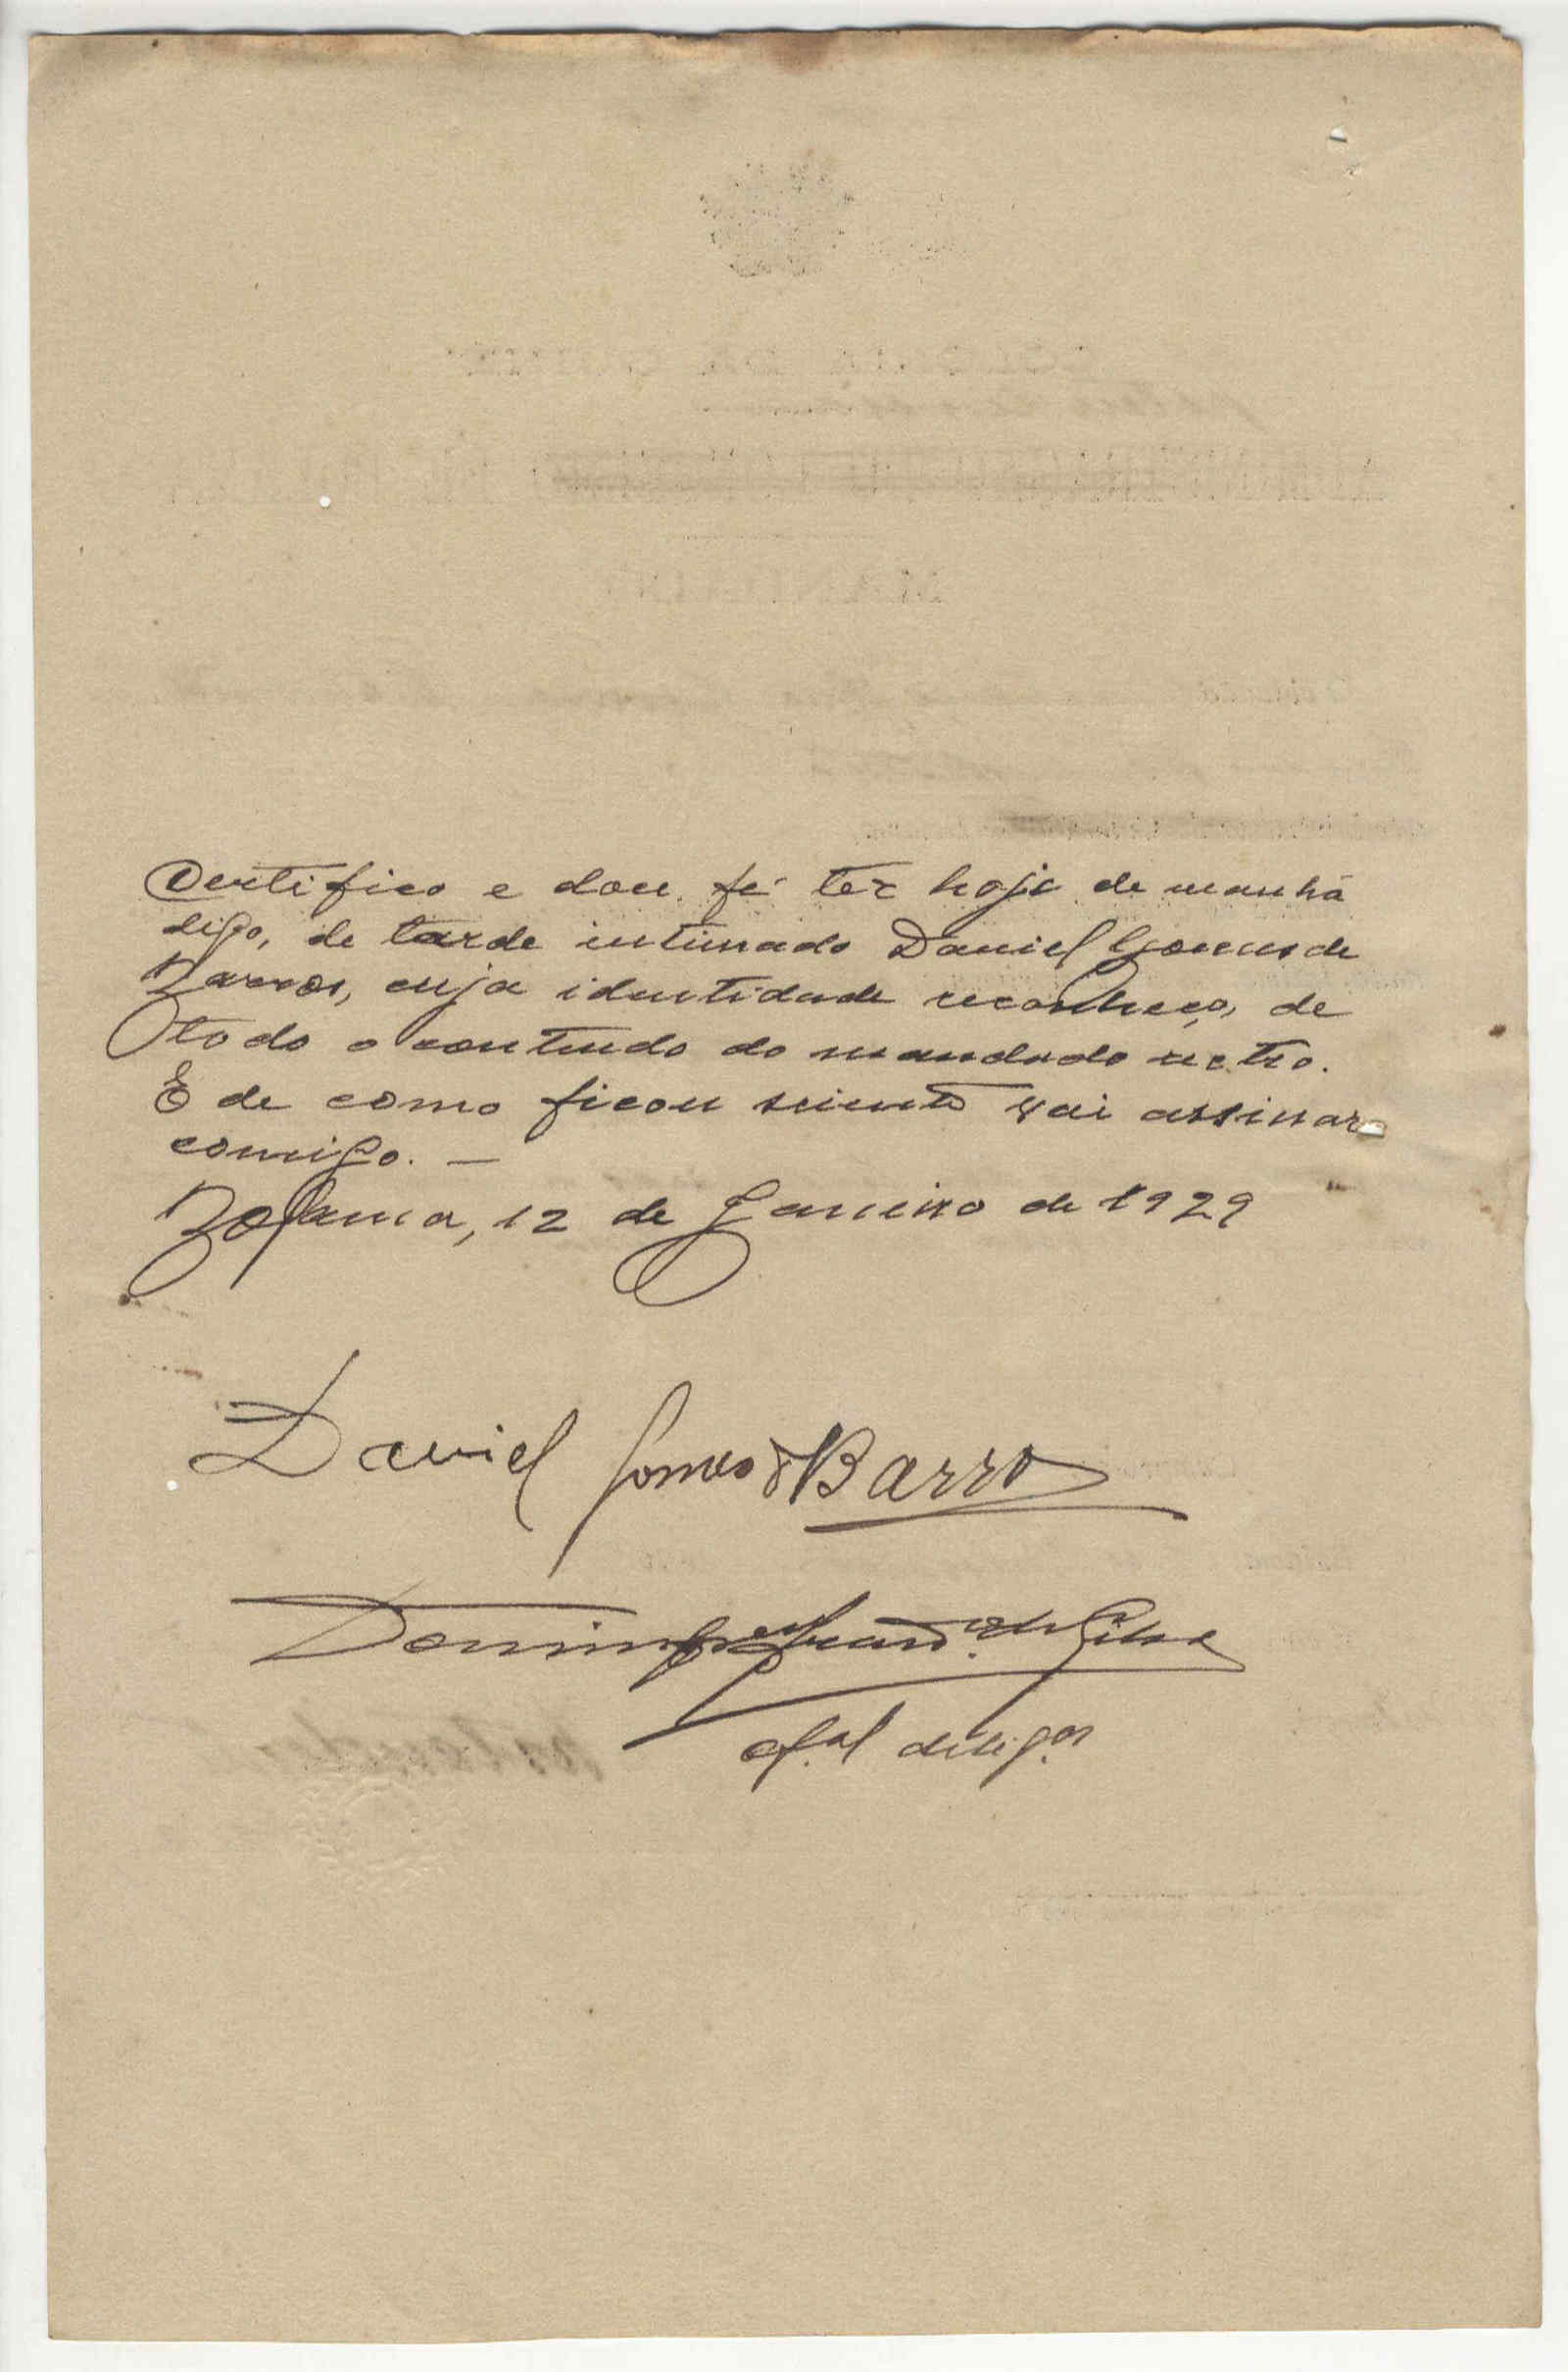 Certifico e dou fé ter hoje de manhã
digo, de tarde intimado Daniel Gomes de
Barros, cuja identidade reconheço, de
todo o contendo do mandado retro.
E de como ficou sciente vai assinar
comigo. —
Bolama, 12 de Janeiro de 1929
Daniel Gomes de Barros
Domingos da Silva
of.al dilig.as